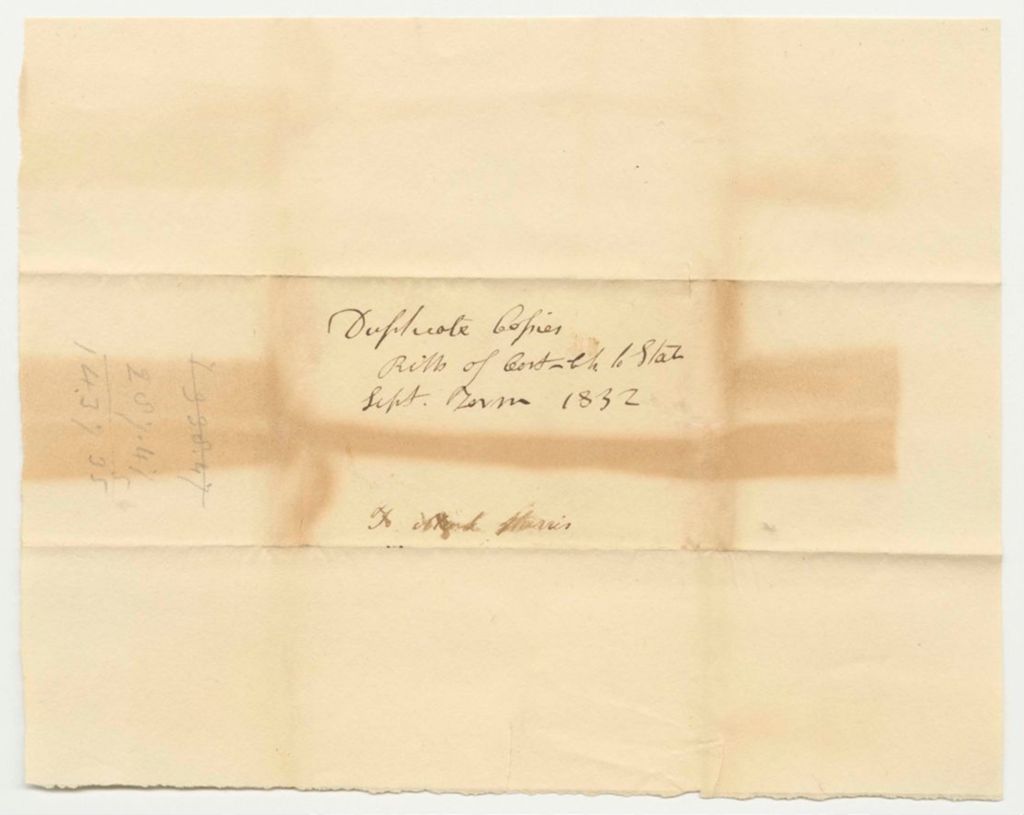 Duplicate Copies
Bills of Cost – Ch to Stat
Sept. Term 1832
To Mark Harris
287.41